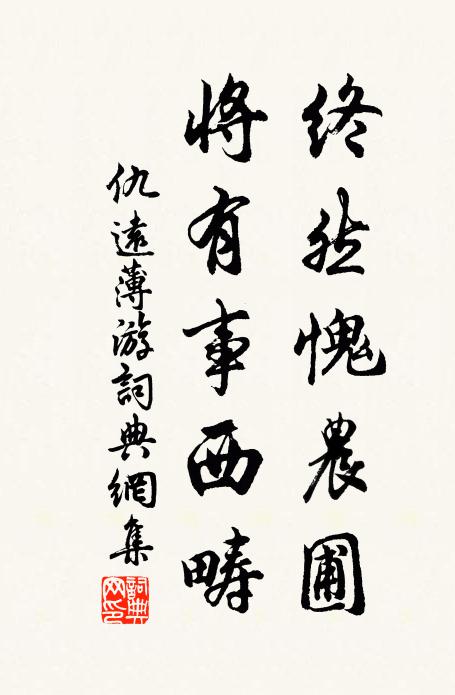 終然愧農圃
將有事西疇
仇遠薄游詞典網集
詞典網印